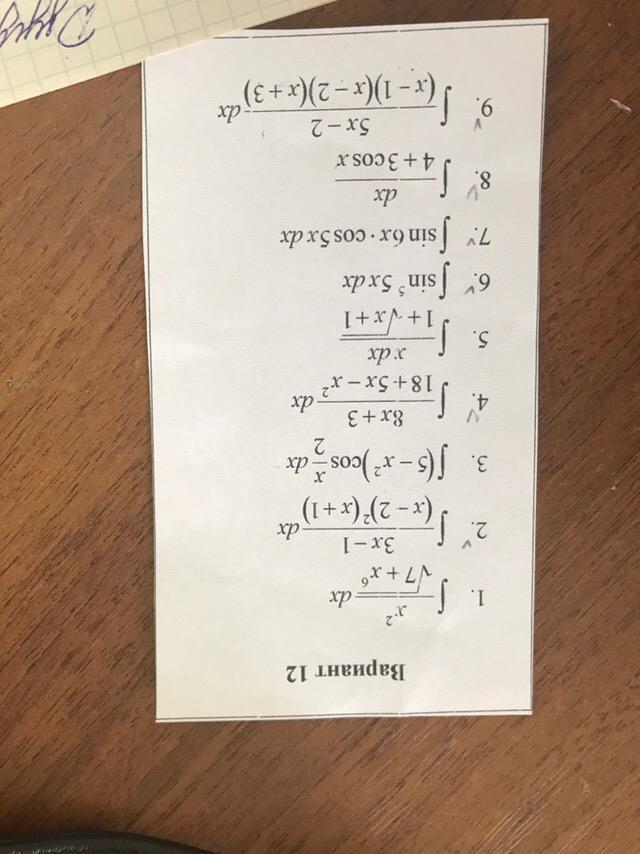 Вариант 12
1. ∫ x² / √(7 + x⁶) dx
2. ∫ (3x − 1) / ((x − 2)²(x + 1)) dx
3. ∫ (5 − x²) cos x/2 dx
4. ∫ (8x + 3) / (18 + 5x − x²) dx
5. ∫ x dx / (1 + √(x + 1))
6. ∫ sin⁵ 5x dx
7. ∫ sin 6x · cos 5x dx
8. ∫ dx / (4 + 3 cos x)
9. ∫ (5x − 2) / ((x − 1)(x − 2)(x + 3)) dx